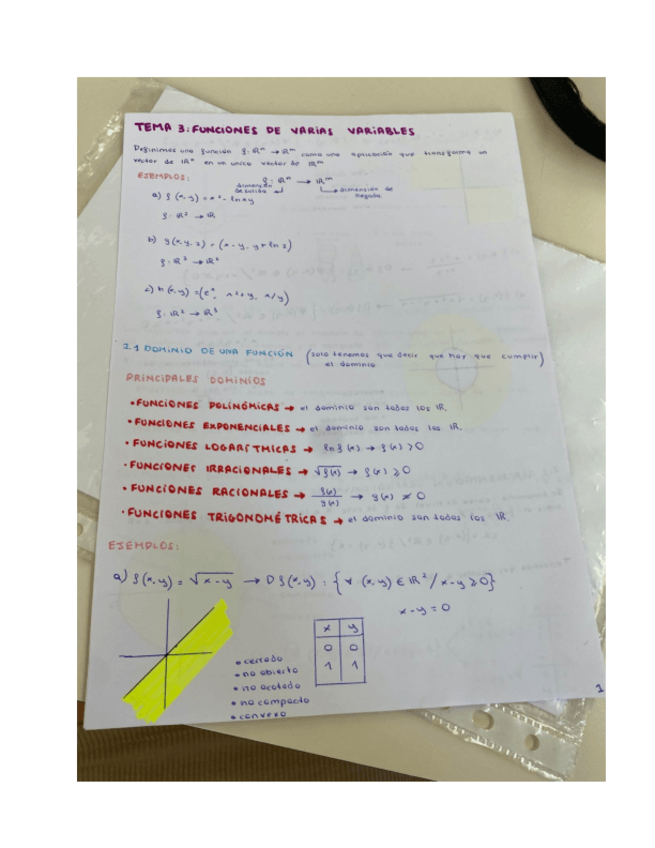 TEMA 3: FUNCIONES DE VARIAS VARIABLES
Definimos una función f: ℝⁿ → ℝᵐ como una aplicación que transforma un
vector de ℝⁿ en un unico vector de ℝᵐ
EJEMPLOS:
f: ℝⁿ → ℝᵐ
dimensión de salida
dimensión de llegada
a) f(x,y) = x² - ln xy
f: ℝ² → ℝ
b) g(x,y,z) = (x-y, y+ln z)
f: ℝ³ → ℝ²
c) h(x,y) = (eˣ, x²+y, x/y)
f: ℝ² → ℝ³
2.1 DOMINIO DE UNA FUNCIÓN (solo tenemos que decir que hay que cumplir)
el dominio
PRINCIPALES DOMINIOS
• FUNCIONES POLINÓMICAS → el dominio son todos los ℝ.
• FUNCIONES EXPONENCIALES → el dominio son todos los ℝ.
• FUNCIONES LOGARÍTMICAS → ln f(x) → f(x) > 0
• FUNCIONES IRRACIONALES → √f(x) → f(x) ≥ 0
• FUNCIONES RACIONALES → f(x)/g(x) → g(x) ≠ 0
• FUNCIONES TRIGONOMÉTRICAS → el dominio son todos los ℝ.
EJEMPLOS:
a) f(x,y) = √x-y → Df(x,y) : {∀ (x,y) ∈ ℝ² / x-y ≥ 0}
x-y = 0
x y
0 0
1 1
• cerrado
• no abierto
• no acotado
• no compacto
• convexo
1